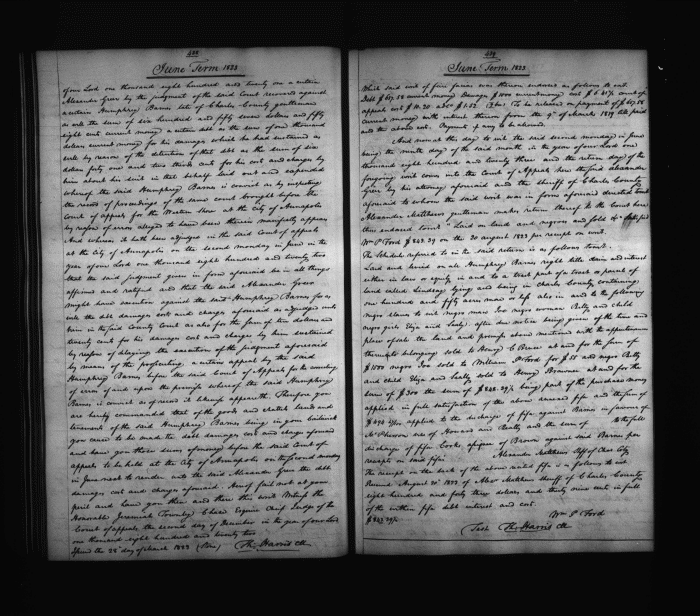 438
June Term 1823
of our Lord one thousand eight hundred and twenty one a certain
Alexander Greer by the judgment of the said Court recovered against
a certain Humphrey Barnes late of Charles County gentleman
as well the sum of six hundred and fifty seven dollars and fifty
eight cent current money a certain debt as the sum of one thousand
dollars current money for his damages which he had sustained as
well by reason of the detention of that debt as the sum of six
dollars forty one and two thirds cents for his cost and charges by
him about his suit in that behalf laid out and expended
whereof the said Humphrey Barnes is convict as by inspecting
the record of proceedings of the same court brought before the
Court of appeals for the Western Shore at the City of Annapolis
by reason of error alleged to have been therein manifestly appears
And whereas it hath been adjudged in the said Court of appeals
at the City of Annapolis on the second monday in June in the
year of our Lord one thousand eight hundred and twenty two
that the said judgment given in form aforesaid be in all things
affirmed and ratified and that the said Alexander Greer
might have execution against the said Humphrey Barnes for as
well the debt damages cost and charges aforesaid as adjudged unto
him in the said County Court as also for the sum of ten dollars and
twenty cents for his damages cost and charges by him sustained
by reason of delaying the execution of the judgment aforesaid
by means of the prosecuting a certain appeal by the said
Humphrey Barnes before the said Court of Appeals for the correcting
of error of and upon the premises whereof the said Humphrey
Barnes is convict as of record it likewise appeareth Therefore you
are hereby commanded that of the goods and chattels lands and
tenements of the said Humphrey Barnes being in your bailiwick
you cause to be made the debt damages cost and charges aforesaid
and have you those sums of money before the said Court of
appeals to be held at the City of Annapolis on the second monday
in June next to render unto the said Alexander Greer the debt
damages cost and charges aforesaid Hereof fail not at your
peril and have you then and there this writ Witness the
Honorable Jeremiah Townley Chase Esquire Chief Judge of the
Court of appeals the second day of December in the year of our Lord
one thousand eight hundred and twenty two
Issued the 28th day of March 1823 Th: Harris Clk
439
June Term 1823
Which said writ of fieri facias was thereon endorsed as follows to wit
Debt $657.58 current money Damages $1000 current money cost $6.41⅔ court of
appeals cost $10.20 To be released on payment of $657.58
current money with interest thereon from the 9th of March 1819 till paid
and the above cost. Payment if any to be allowed.
And now at this day to wit the said second monday in June
being the ninth day of the said month in the year of our Lord one
thousand eight hundred and twenty three and the return day of the
foregoing writ comes into the Court of Appeals here the said Alexander
Greer by his attorney aforesaid and the Sheriff of Charles County
aforesaid to whom the said writ was in form aforesaid directed
Alexander Matthews gentleman makes return thereof to the Court here
thus endorsed to wit "Laid on land and negroes and sold &c Satisfied
Wm P. Ford $843.39 on the 20 august 1823 per receipt on writ.
The Schedule referred to in the said return is as follows to wit.
Laid and seized on all Humphrey Barnes right title claim and interest
either in law or equity in and to a tract part of a tract or parcel of
land called Lindsays lying and being in Charles County containing
one hundred and fifty acres more or less also in and to the following
negro slaves to wit negro man Joe negro woman Patty and child
negro girls Eliza and Sally. after due notice being given of the time and
place of sale the land and premises above mentioned with the appurtenances
thereunto belonging sold to Henry C Bruce at and for the sum of
$1580 negro Joe sold to William P. Ford for $55 and negro Patty
and child Eliza and Sally sold to Henry Brawner at and for the
sum of $300 the sum of $843.39 being part of the purchase money
applied in full satisfaction of the above annexed fifa and the sum of
applied to the discharge of fifa against Barnes in favour of
McPherson use of Howard and Beatty and the sum of in the full
discharge of fifa Cooke assignee of Brown against said Barnes per
receipts on said fifas Alexander Matthews Shff of Char. Cty
The receipt on the back of the above recited fifa is as follows to wit
Received August 20th 1823 of Alexr Matthews Sheriff of Charles County
eight hundred and forty three dollars and thirty nine cents in full
of the within fifa debt interest and cost.
$843.39 Wm P. Ford
Test Th: Harris Clk